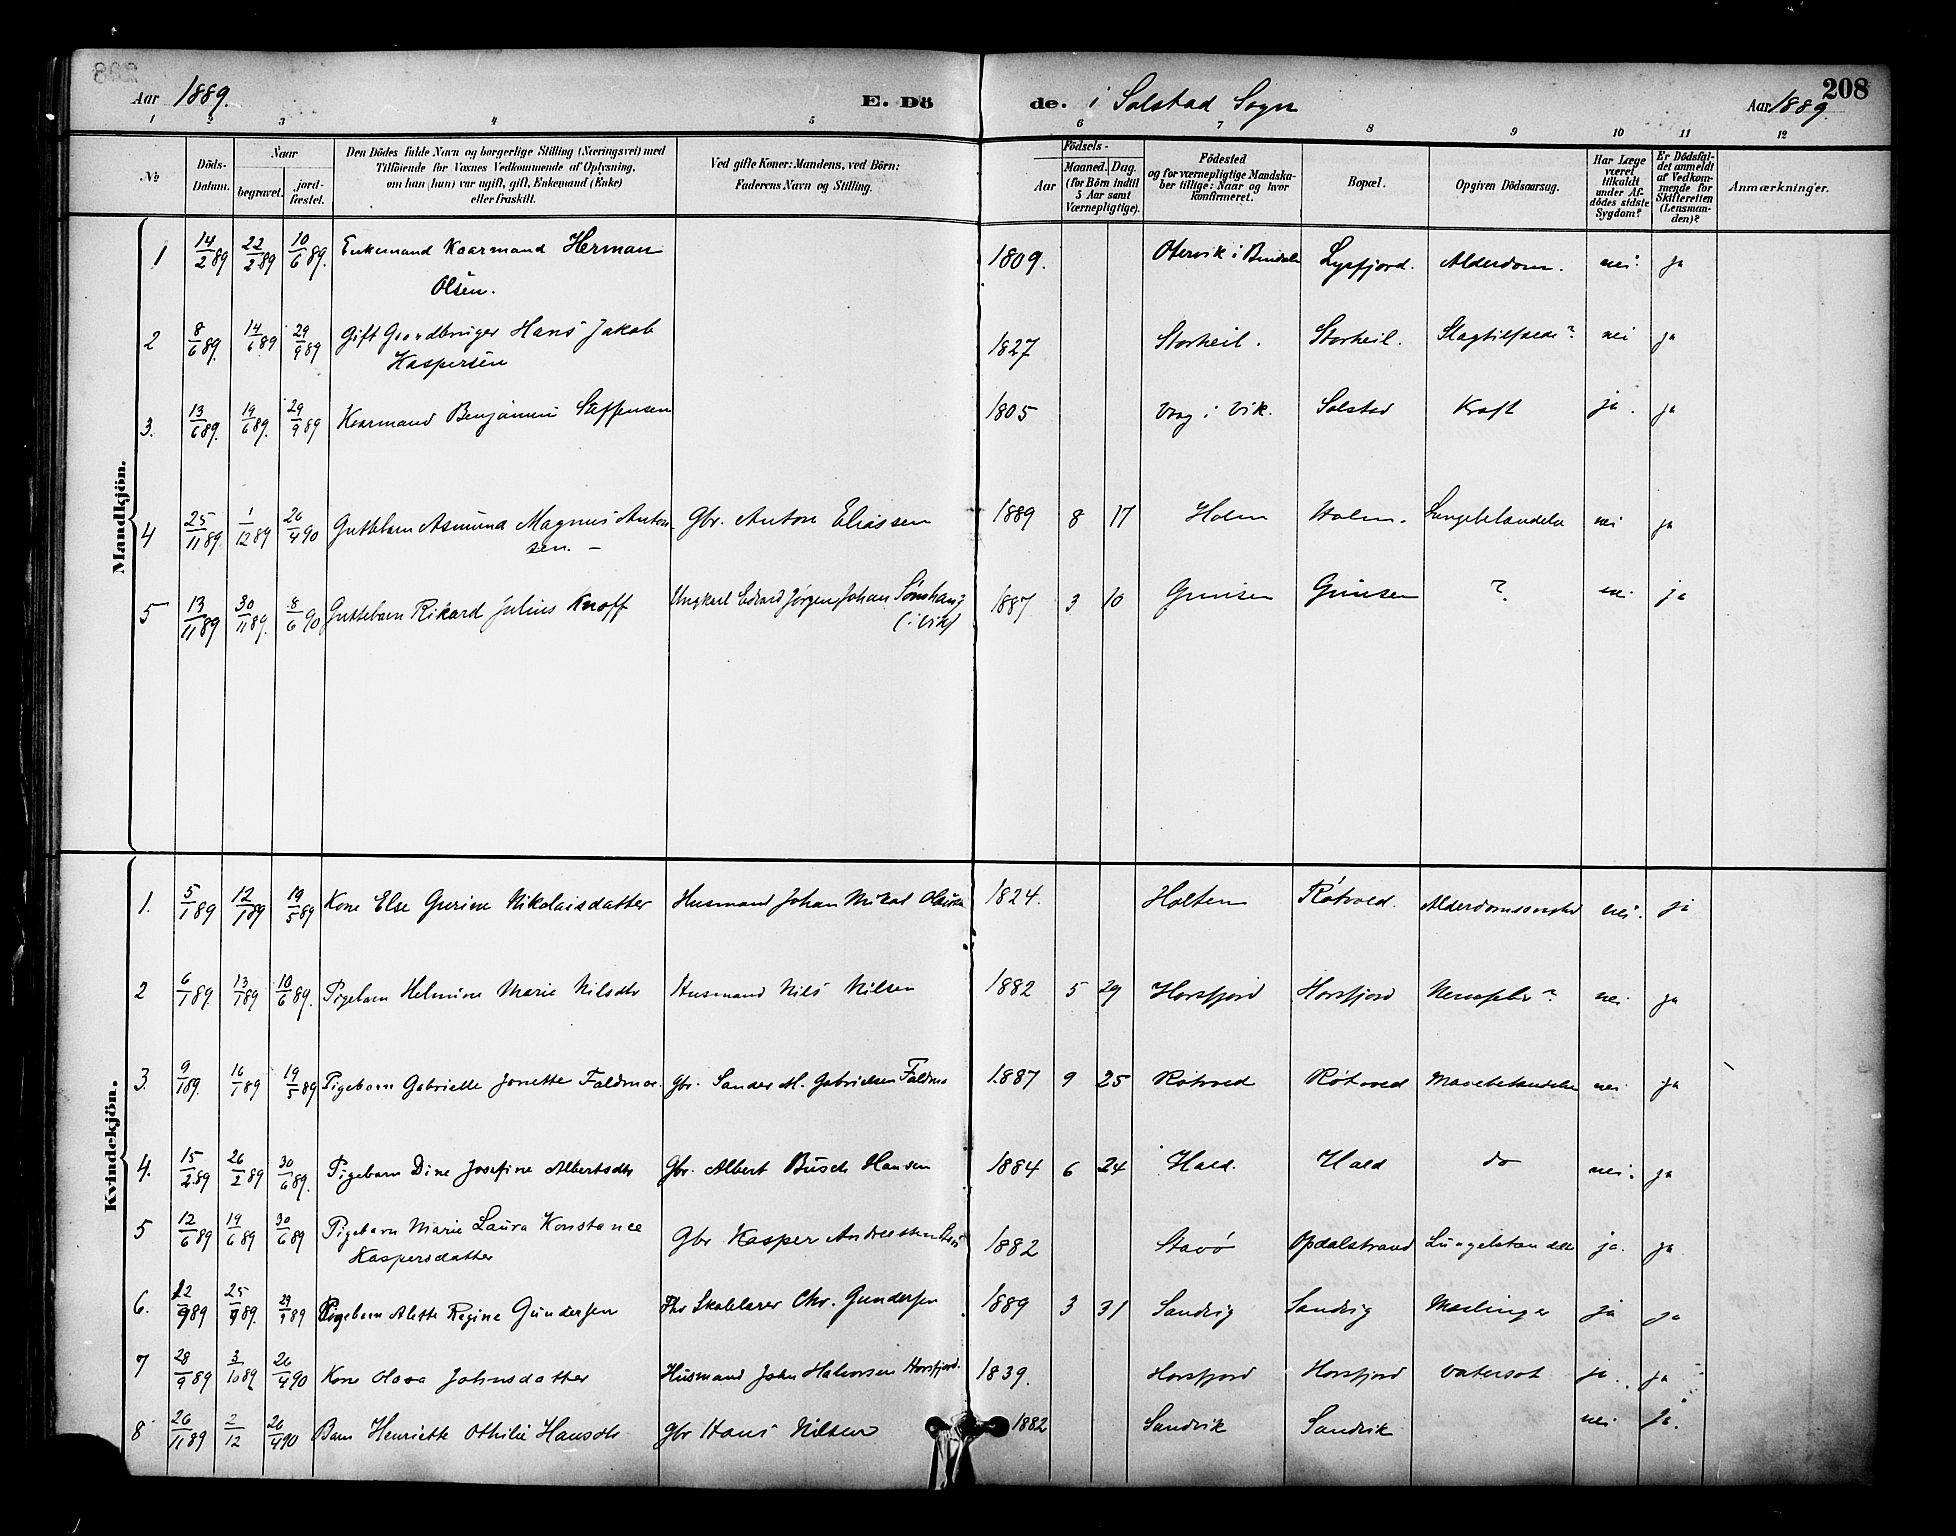 208
Aar 1889.
E. Dö
de. i Solstad Sogn
Aar 1889.
1 2 3 4 5 6 7 8 9 10 11 12
No
Döds-Datum.
Naar
begravet.
jord-fæstet.
Den Dödes fulde Navn og borgerlige Stilling (Næringsvei) med
Tilföiende for Voxnes Vedkommende af Oplysning,
om han (hun) var ugift, gift, Enkemand (Enke)
eller fraskilt.
Ved gifte Koner: Mandens, ved Börn:
Faderens Navn og Stilling.
Födsels-
Aar
Maaned. Dag.
(for Börn indtil
5 Aar samt
Værnepligtige).
Födested
og for værnepligtige Mandska-
ber tillige: Naar og hvor
konfirmeret.
Bopæl.
Opgiven Dödsaarsag.
Har Læge
været
tilkaldt
under Af-
dödes sidste
Sygdom?
Er Dödsfal-
det anmeldt
af Vedkom-
mende for
Skifteretten
(Lensman-
den)?
Anmærkninger.
Mandkjön.
1 14/2 89 22/2 89 10/6 89. Enkemand Kaarmand Herman 1809. Otervik i Bindalen Lysfjord. Alderdom. nei ja
Olsen.
2 8/6 89. 14/6 89 29/9 89 Gift Gaardbruger Hans Jakob 1827 Storheil. Storheil. Slagtilfælde? nei ja
Kaspersen
3. 13/6 89. 19/6 89. 29/9 89 Kaarmand Benjamin Steffensen 1805 Vaag i Vik. Solstad Kræft ja. ja
4 25/11 89. 1/12 89 26/4 90 Guttebarn Asmund Magnus Anton- Gbr. Anton Eliassen 1889 8 17 Holm Holm. Lungebetændelse nei ja
sen. –
5 13/11 89 30/11 89. 8/6 90 Guttebarn Rikard Julius Knoff Ungkarl Edvard Jørgen Johan 1887 3 10 Grimsen Grimsen ? nei ja
(i Vik)
Kvindekjön.
1. 5/1 89 12/1 89 19/5 89 Kone Else Gurine Nikolaisdatter Husmand Johan Mikal 1824. Holten Røtvold. nei. ja
2 6/1 89 13/1 89 10/6 89. Pigebarn Helmine Marie Nilsdtr Husmand Nils Nilsen 1882 5 29 Horsfjord Horsfjord nei ja
3. 9/1 89. 16/1 89 19/5 89 Pigebarn Gabrielle Jonette Faldmoe. Gbr. Sander M. Gabrielsen Faldmo 1887 9 25 Røtvold Røtvold Mavebetændelse nei ja
4. 15/2 89 26/2 89 30/6 89. Pigebarn Dine Josefine Albertsdtr Gbr. Albert Busch Hansen 1884 6 24 Hald. Hald do nei. ja
5 12/6 89 19/6 89 30/6 89 Pigebarn Marie Laura Konstance Gbr Kasper Andreassen 1882 Stavø Opdalstrand Lungebetændelse ja. ja
Kaspersdatter
6. 12/9 89 25/9 89. 29/9 89 Pigebarn Alette Regine Gundersen Fhv Skolelærer Chr. Gundersen 1889 3 31 Sandvig Sandvig Mæslinger ja ja
7 28/9 89 3/10 89 26/4 90 Kone Olava Johnsdatter Husmand John Halvorsen Horsfjord. 1839. Horsfjord Horsfjord Vatersot ja. ja
8 26/11 89 2/12 26/4 90 Barn Henriette Othilie Hansdtr Gbr Hans Nilsen 1882 Sandvik Sandvik nei ja.